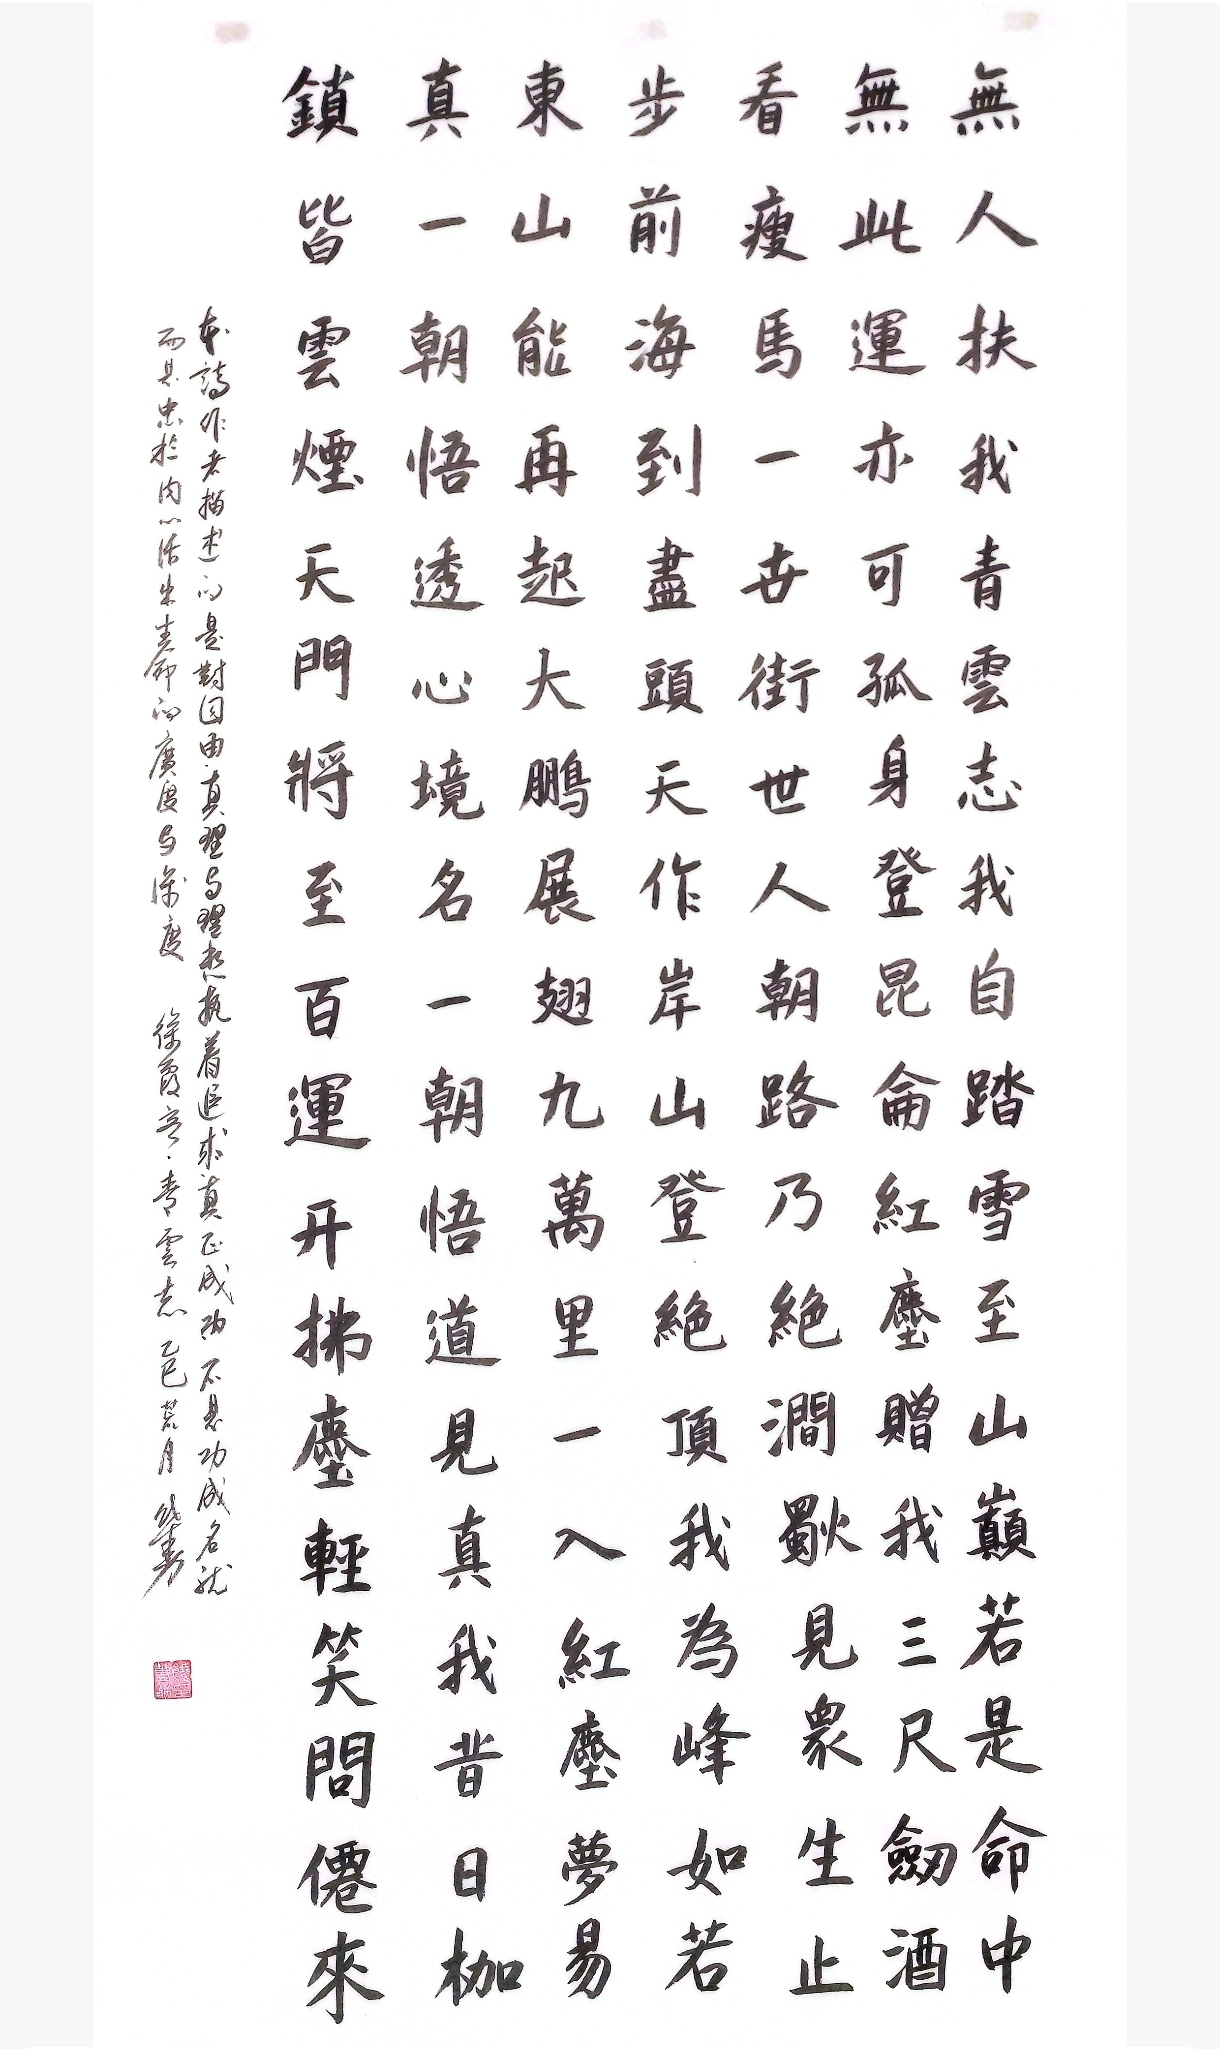 無人扶我青雲志我自踏雪至山巔若是命中
無此運亦可孤身登昆侖紅塵贈我三尺劒酒
看瘦馬一世街世人朝路乃絶澗歠見衆生止
步前海到盡頭天作岸山登絶頂我為峰如若
東山能再起大鵬展翅九萬里一入紅塵夢易
真一朝悟透心境名一朝悟道見真我昔日枷
鎖皆雲煙天門將至百運开拂塵輕笑問僊來
本詩作者描述的是對自由真理与理想执着追求真正成功不是功成名就
而是忠於内心活出生命的廣度与深度 徐霞客·青雲志 乙巳 月